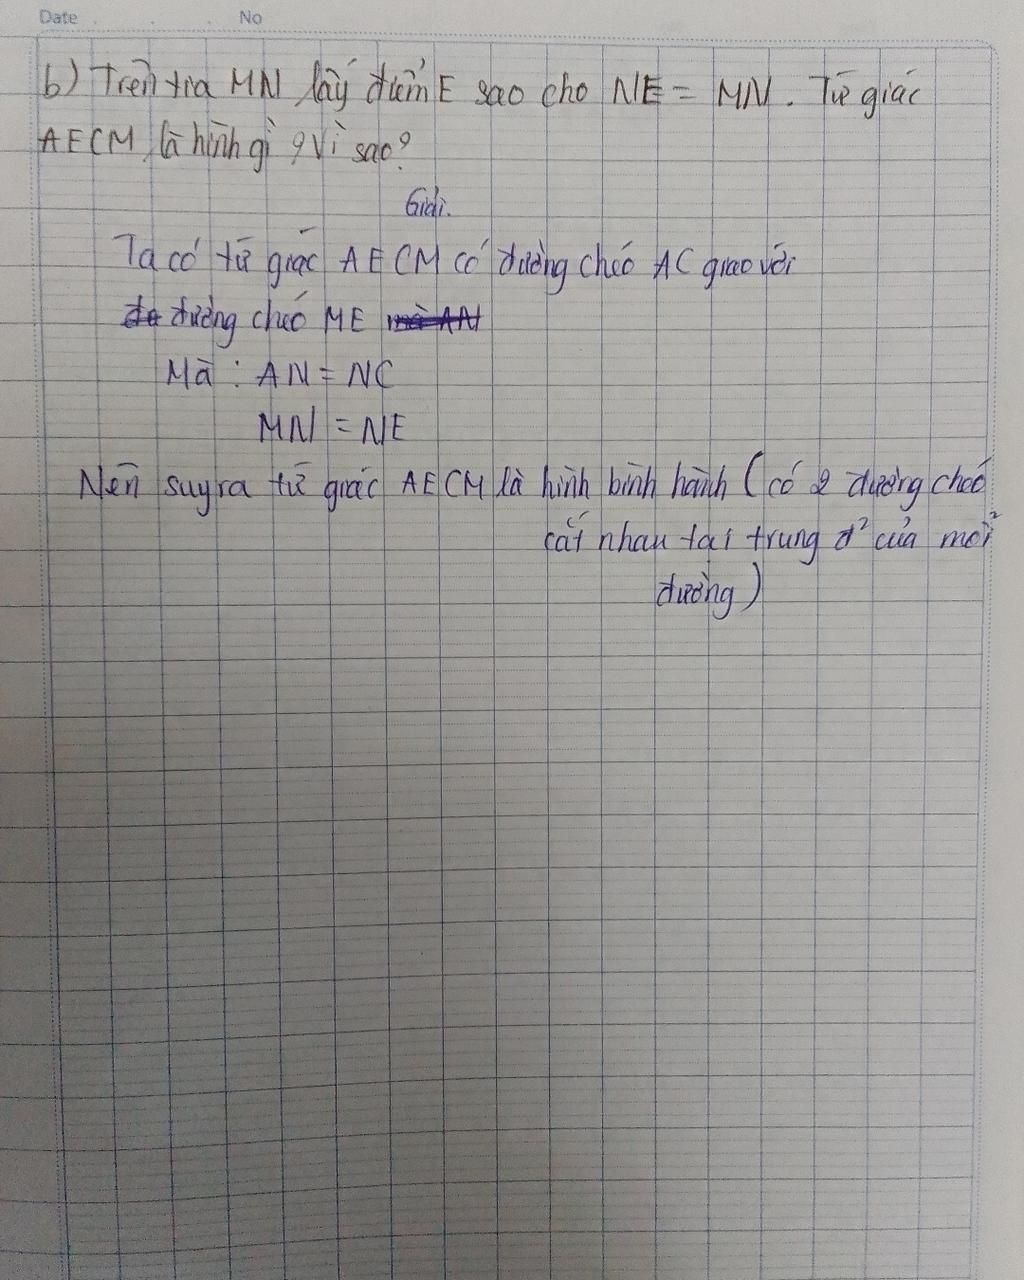 Date No
b) Trên tia MN lấy điểm E sao cho NE = MN. Tứ giác
AECM là hình gì? Vì sao?
Giải.
Ta có tứ giác AECM có đường chéo AC giao với
đường chéo ME
Mà : AN = NC
MN = NE
Nên suy ra tứ giác AECM là hình bình hành (có 2 đường chéo
cắt nhau tại trung đ² của mỗi
đường)